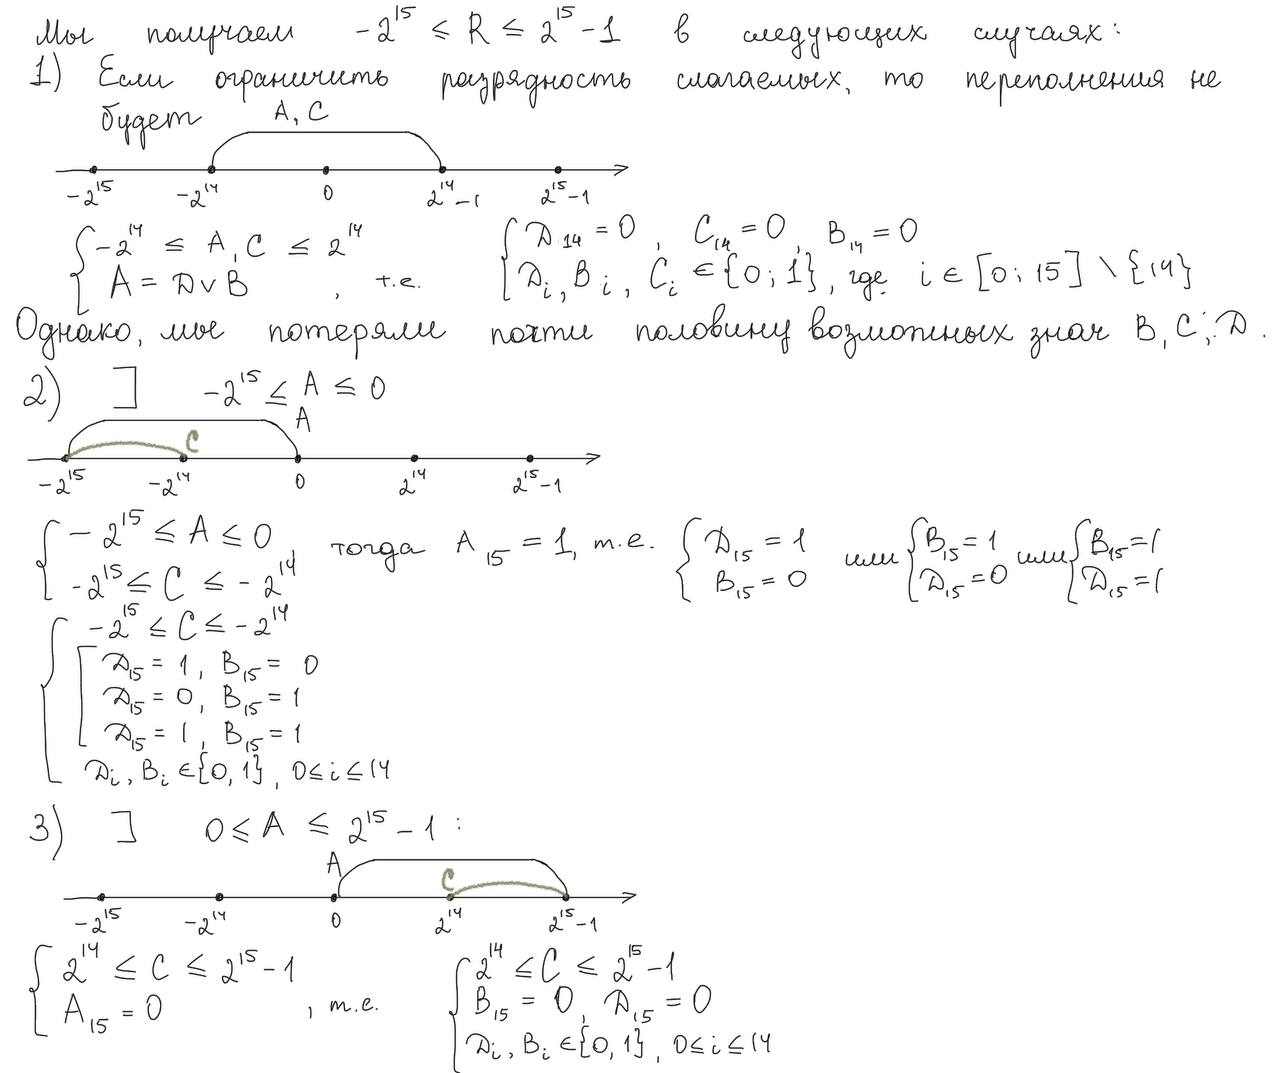 Мы получаем -2^15 ≤ R ≤ 2^15 -1 в следующих случаях:
1) Если ограничить разрядность слагаемых, то переполнения не
будет
A, C
-2^15 -2^14 0 2^14 -1 2^15 -1
{ -2^14 ≤ A, C ≤ 2^14
A = D ∨ B , т.е.
{ D_14 = 0, C_14 = 0, B_14 = 0
D_i, B_i, C_i ∈ {0; 1}, где i ∈ [0; 15] \ {14}
Однако, мы потеряли почти половину возможных знач B, C, D.
2) ] -2^15 ≤ A ≤ 0
A
C
-2^15 -2^14 0 2^14 2^15 -1
{ -2^15 ≤ A ≤ 0
-2^15 ≤ C ≤ -2^14 , тогда A_15 = 1, т.е. { D_15 = 1
B_15 = 0 или { B_15 = 1
D_15 = 0 или { B_15 = 1
D_15 = 1
{ -2^15 ≤ C ≤ -2^14
[ D_15 = 1, B_15 = 0
D_15 = 0, B_15 = 1
D_15 = 1, B_15 = 1
D_i, B_i ∈ {0, 1}, 0 ≤ i ≤ 14
3) ] 0 ≤ A ≤ 2^15 -1 :
A
C
-2^15 -2^14 0 2^14 2^15 -1
{ 2^14 ≤ C ≤ 2^15 -1
A_15 = 0 , т.е.
{ 2^14 ≤ C ≤ 2^15 -1
B_15 = 0, D_15 = 0
D_i, B_i ∈ {0, 1}, 0 ≤ i ≤ 14